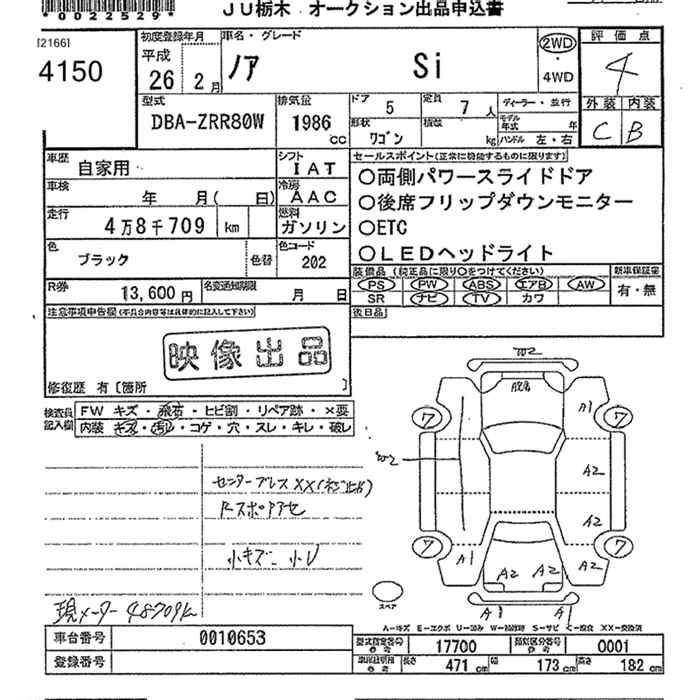 *0022529*
JU栃木 オークション出品申込書
[2166]
4150
初度登録年月
平成
26 2月
車名・グレード
ノア Si
2WD
4WD
評価点
4
外装 内装
C B
型式
DBA-ZRR80W
排気量
1986
cc
ドア 5
定員 7人
形状 ワゴン
積載 kg
ディーラー・並行
モデル年式 年
ハンドル 左・右
車歴
自家用
シフト
IAT
車検
年 月( 日)
冷房
AAC
走行
4万8千709 km
燃料
ガソリン
色
ブラック
色替
色コード
202
R券
13,600円
名変通知期限
月 日
セールスポイント(正常に機能するものに限ります)
○両側パワースライドドア
○後席フリップダウンモニター
○ETC
○LEDヘッドライト
装備品(純正品に限り○をつけてください)
PS PW ABS エアB AW
SR ナビ TV カワ
新車保証書
有・無
後日品
注意事項申告欄(不具合内容等は具体的に記入して下さい)
映像出品
修復歴 有〔箇所 〕
検査員記入欄
FW キズ・飛石・ヒビ割・リペア跡・×要
内装 キズ・汚レ・コゲ・穴・スレ・キレ・破レ
センターブレスXX
小キズ 小U
現メーター 48709K
W2
A1
ワ
ワ
W2
A2
A2
ワ
ワ
A1
A2 A2
A1
スペア
A1 A1
A-キズ E-エクボ U-凹み W-補修跡 S-サビ C-腐食 XX-交換済
車台番号 0010653
登録番号
型式指定番号 参考 17700
類別区分番号 参考 0001
長さ 471cm 幅 173cm 高さ 182cm